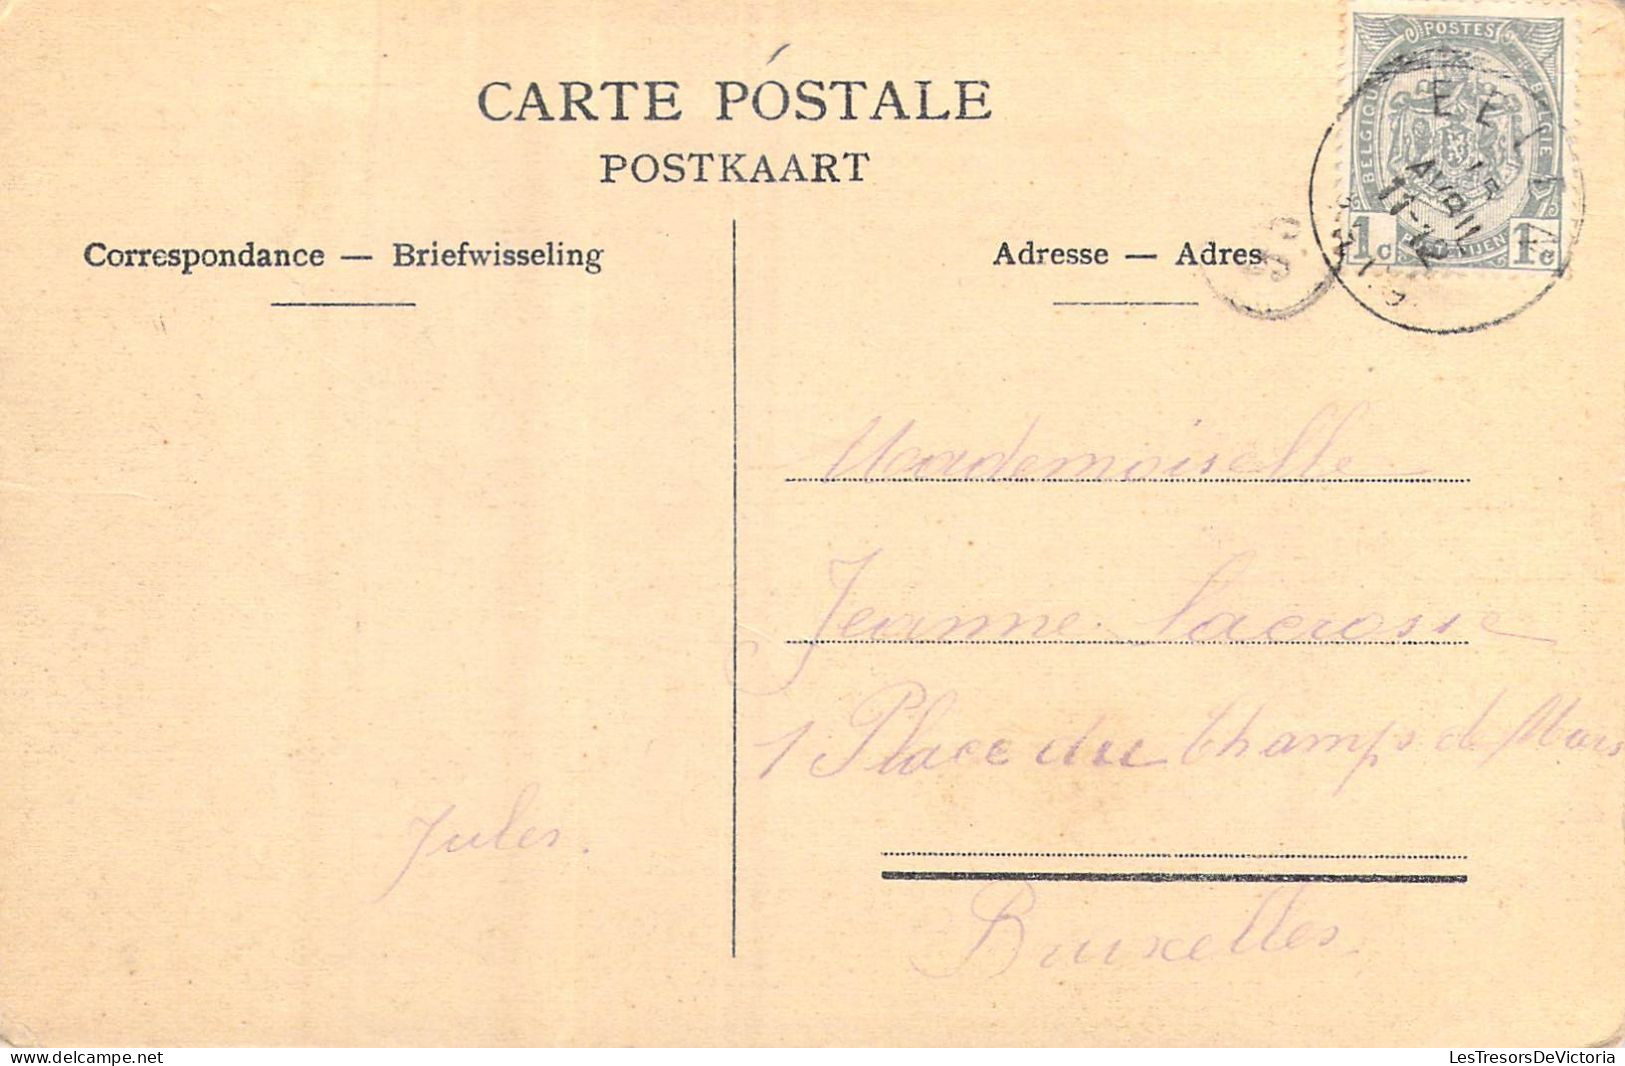 CARTE PÓSTALE
POSTKAART
Correspondance — Briefwisseling
Adresse — Adres
POSTES
BELGIQUE
BELGIË
1c
1c
AVRIL
11-12
Mademoiselle
Jeanne Lacrosse
1 Place du Champs de Mars
Bruxelles.
Jules.
LesTresorsDeVictoria